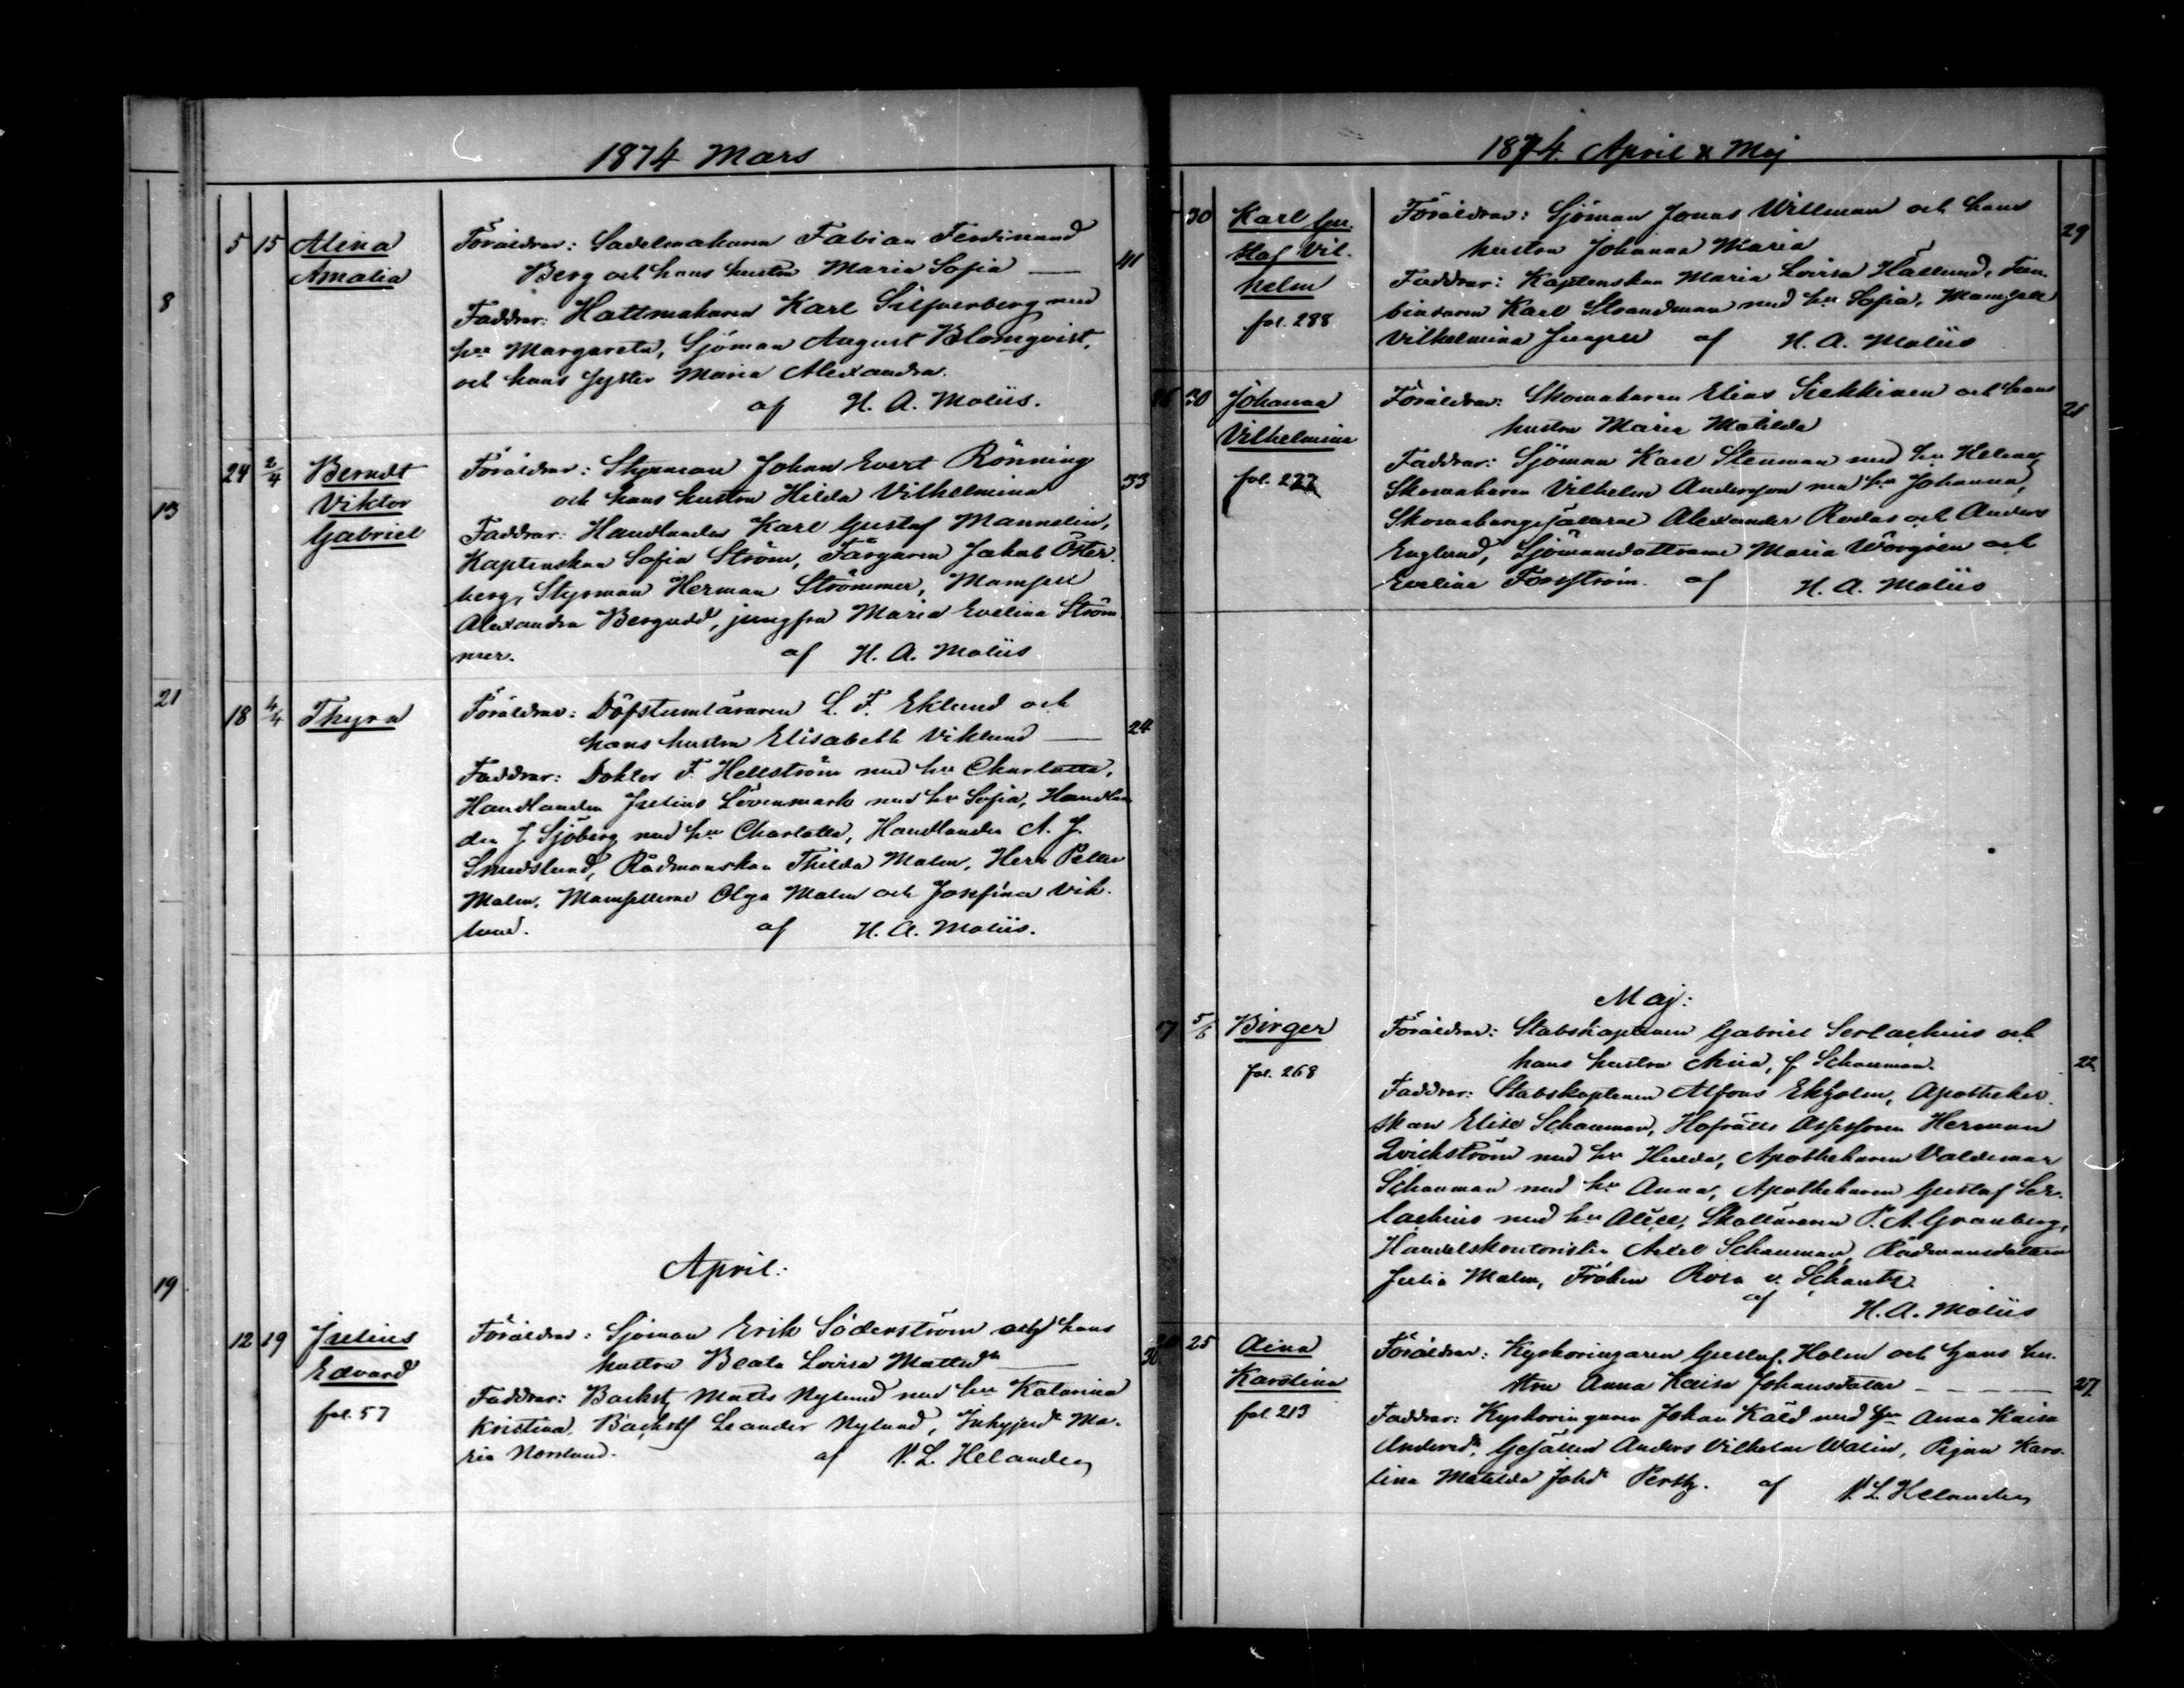 1874 Mars
8
13
21
19
5 15 Alina
Amalia
Föräldrar: Sadelmakaren Fabian Ferdinand
Berg och hans hustru Maria Sofia — 41
Faddrar: Hattmakaren Karl Silfverberg med
hu Margareta, Sjöman August Blomqvist,
och hans syster Maria Alexandra.
af H. A. Moliis.
24 2/4 Berndt
Viktor
Gabriel
Föräldrar: Styrman Johan Evert Rönning
och hans hustru Hilda Vilhelmina 33
Faddrar: Handlanden Karl Gustaf Mannelin,
Kaptenskan Sofia Ström, Färgaren Jakob Öster-
berg, Styrman Herman Strömmer, Mamsell
Alexandra Bergudd, jungfru Maria Evelina Ström-
mer. af H. A. Moliis
18 4/4 Thyra
Föräldrar: Döfstumläraren L. F. Eklund och
hans hustru Elisabeth Viklund — 24
Faddrar: Doktor F. Hellström med hu Charlotta,
Handlanden Julius Lövenmark med hu Sofia, Handlan
den J. Sjöberg med hu Charlotta, Handlanden A. J.
Smedslund, Rådmanskan Thilda Malm, Herr Petter
Malm, Mamsellerne Olga Malm och Josefina Vik-
lund. af H. A. Moliis.
April:
12 19 Julius
Edvard
fol. 57
Föräldrar: Sjöman Erik Söderström och hans
hustru Beata Lovisa Mattsdr —
Faddrar: Backst. Matts Nylund med hu Katarina
Kristina, Backst. Leander Nylund, Ma-
ria Norrlund. af V. L. Helander
1874. April & Maj
30 Karl Gu-
staf Vil-
helm
fol. 288
Föräldrar: Sjöman Jonas Willman och hans
hustru Johanna Maria 29
Faddrar: Kaptenskan Maria Lovisa Hällund,
Karl Strandman med hu Sofia, Mamsell
Vilhelmina af H. A. Moliis
26 30 Johanna
Vilhelmina
fol. 227
Föräldrar: Skomakaren Elias Siekkinen och hans
hustru Maria Matilda 21
Faddrar: Sjöman Karl Stenman med hu Helena,
Skomakaren Vilhelm Andersson med hu Johanna,
Skomakaregesällerne Alexander Rodas och Anders
Englund, Sjömansdöttrarne Maria och
Evelina Forsström. af H. A. Moliis
Maj:
7 5/6 Birger
fol. 268
Föräldrar: Stabskaptenen Gabriel Serlachius och
hans hustru Aina, f. Schauman. 22
Faddrar: Stabskaptenen Alfons Ekholm, Apotheker-
skan Elise Schauman, Hofrätts Assessoren Herman
Qvickström med hu Hulda, Apothekaren Valdemar
Schauman med hu Anna, Apothekaren Gustaf Ser-
lachius med hu Alice, Skolläraren P. A. Granberg,
Handelskontoristen Axel Schauman, Rådmansdottren
Julia Malm, Fröken Rosa v. Schantz.
af H. A. Moliis
20 25 Aina
Karolina
fol. 213
Föräldrar: Kyrkoringaren Gustaf Holm och hans hu-
stru Anna Kaisa Johansdotter — — — 27
Faddrar: Kyrkoringaren Johan Kåld med hu Anna Kaisa
Andersdr, Gesällen Anders Vilhelm Walin, Pigan Karo-
lina Matilda Johdr Perth. af V. L. Helander